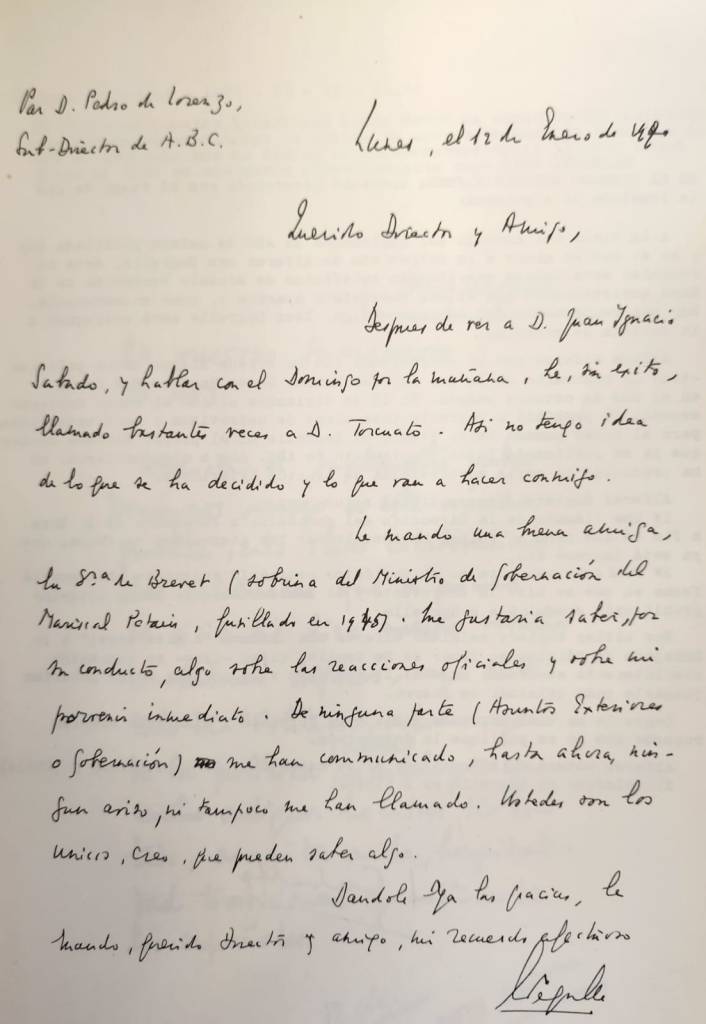 Par D. Pedro de Lorenzo,
Sub-Director de A.B.C.
Lunes, el 12 de Enero de 1970
Querido Director y Amigo,
Despues de ver a D. Juan Ignacio
Sabado, y hablar con el Domingo por la mañana, he, sin exito,
llamado bastantes veces a D. Torcuato. Asi no tengo idea
de lo que se ha decidido y lo que van a hacer conmigo.
Le mando una buena amiga,
la Sr.a de Brevet (sobrina del Ministro de Gobernación del
Mariscal Petain, fusillado en 1945). Me gustaria saber, por
su conducto, algo sobre las reacciones oficiales y sobre mi
porvenir inmediato. De ninguna parte (Asuntos Exteriores
o Gobernación) me han communicado, hasta ahora, nin-
gun aviso, ni tampoco me han llamado. Ustedes son los
unicos, creo, que pueden saber algo.
Dandole ya las gracias, le
mando, querido Director y amigo, mi recuerdo afectuoso